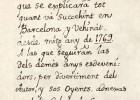 que se explicará tot
quant va succehint en
Barcelona, y Vehinat
desde mitx any de 1769.
a las que seguiràn las
dels demès anys esdeveni-
dors, per divertiment del
autor, y sos oyents,